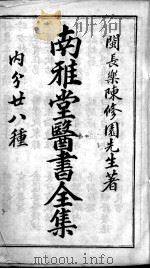 閩長樂陳修園先生著
南雅堂醫書全集
內分廿八種